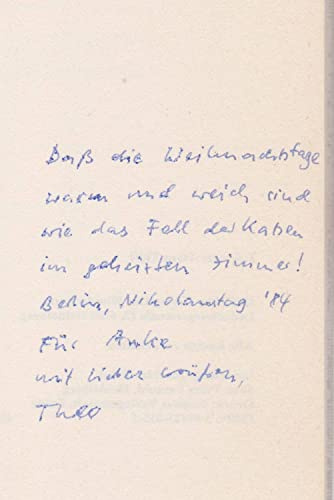 Daß die Weihnachtstage
warm und weich sind
wie das Fell der Katzen
im geheizten Zimmer!
Berlin, Nikolaustag '84
Für Anke
mit lieben Grüßen,
Theo